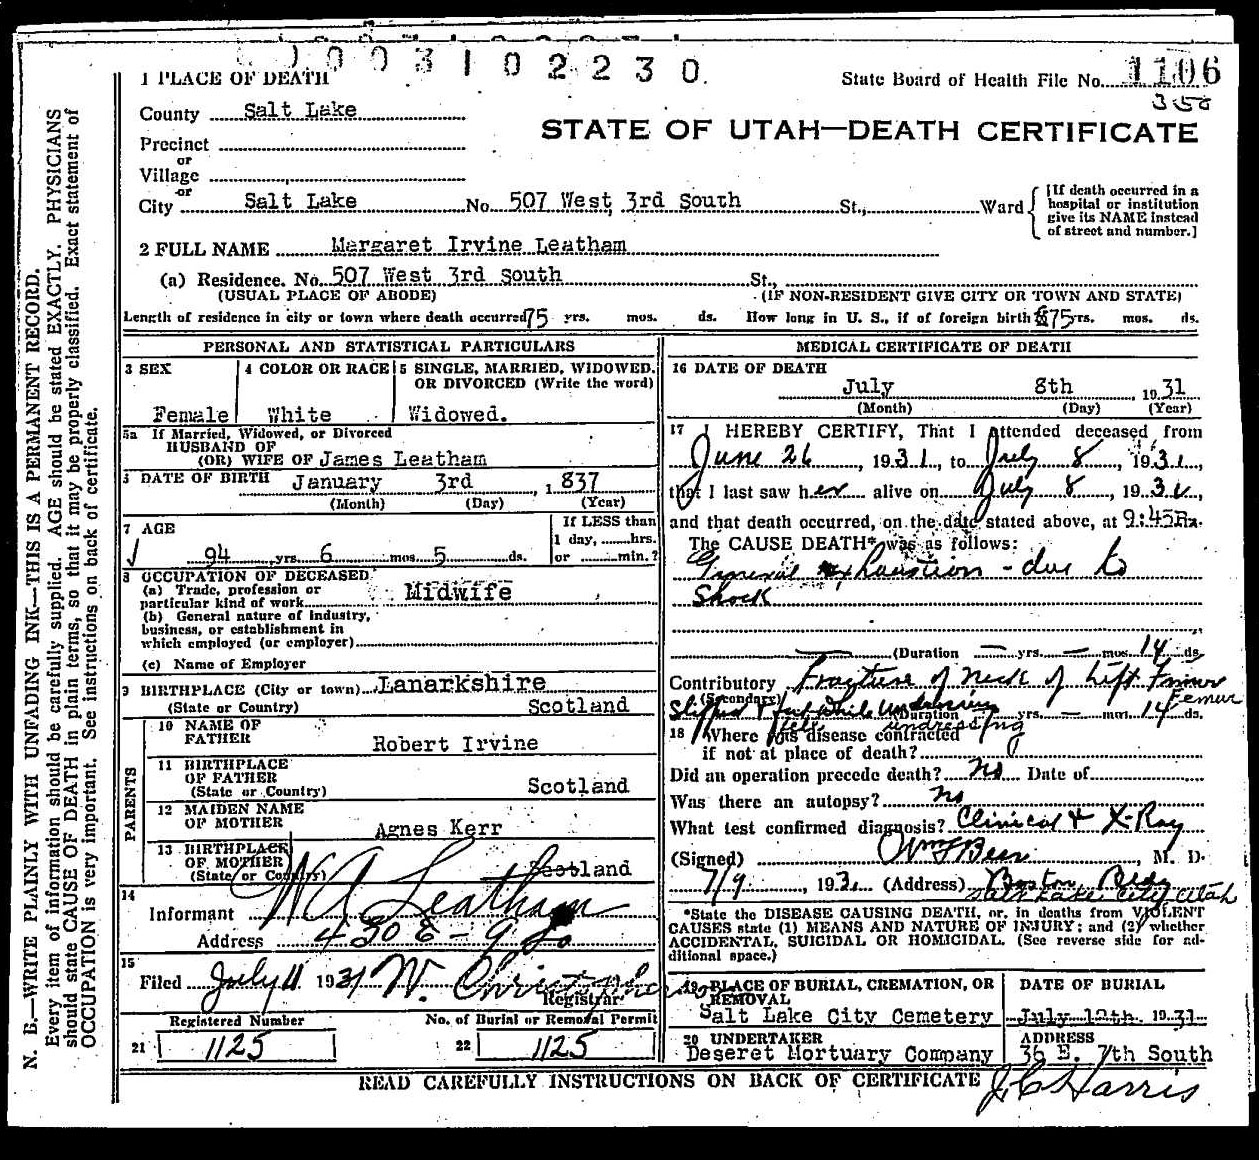 0003102230.
1 PLACE OF DEATH
State Board of Health File No. 1106
350
County Salt Lake
STATE OF UTAH—DEATH CERTIFICATE
Precinct
or
Village
or
City Salt Lake No. 507 West 3rd South St., Ward
[If death occurred in a
hospital or institution
give its NAME instead
of street and number.]
2 FULL NAME Margaret Irvine Leatham
(a) Residence. No. 507 West 3rd South St.,
(USUAL PLACE OF ABODE) (IF NON-RESIDENT GIVE CITY OR TOWN AND STATE)
Length of residence in city or town where death occurred 75 yrs. mos. ds. How long in U. S., if of foreign birth 75 yrs. mos. ds.
PERSONAL AND STATISTICAL PARTICULARS
3 SEX
Female
4 COLOR OR RACE
White
5 SINGLE, MARRIED, WIDOWED,
OR DIVORCED (Write the word)
Widowed.
5a If Married, Widowed, or Divorced
HUSBAND OF
(OR) WIFE OF James Leatham
DATE OF BIRTH January 3rd , 1837
(Month) (Day) (Year)
7 AGE
94 yrs. 6 mos. 5 ds.
If LESS than
1 day, hrs.
or min.?
8 OCCUPATION OF DECEASED
(a) Trade, profession or
particular kind of work Midwife
(b) General nature of industry,
business, or establishment in
which employed (or employer)
(c) Name of Employer
9 BIRTHPLACE (City or town) Lanarkshire
(State or Country) Scotland
PARENTS
10 NAME OF
FATHER Robert Irvine
11 BIRTHPLACE
OF FATHER
(State or Country) Scotland
12 MAIDEN NAME
OF MOTHER Agnes Kerr
13 BIRTHPLACE
OF MOTHER
(State or Country) Scotland
14
Informant W A Leatham
Address 430 E - 9 So
15
Filed July 11 1931 W. Christopherson
Registrar
Registered Number
21 1125
No. of Burial or Removal Permit
22 1125
MEDICAL CERTIFICATE OF DEATH
16 DATE OF DEATH
July 8th 1931
(Month) (Day) (Year)
17 I HEREBY CERTIFY, That I attended deceased from
June 26, 1931, to July 8, 1931,
that I last saw her alive on July 8, 1931,
and that death occurred, on the date stated above, at 9:45
The CAUSE DEATH* was as follows:
General exhaustion - due to
Shock
(Duration — yrs. — mos. 14 ds.
Contributory Fracture of neck of left Femur
(Secondary) Femur
Slipped & fell while undressing
(Duration yrs. — mos. 14 ds.
fell undressing
18 Where was disease contracted
if not at place of death?
Did an operation precede death? no Date of
Was there an autopsy? no
What test confirmed diagnosis? Clinical & X-Ray
(Signed) Wm F Beer, M. D.
7/9, 1931 (Address) Boston Bldg
Salt Lake City Utah
*State the DISEASE CAUSING DEATH, or, in deaths from VIOLENT
CAUSES state (1) MEANS AND NATURE OF INJURY; and (2) whether
ACCIDENTAL, SUICIDAL OR HOMICIDAL. (See reverse side for ad-
ditional space.)
19 PLACE OF BURIAL, CREMATION, OR
REMOVAL
Salt Lake City Cemetery
DATE OF BURIAL
July 12th 1931
20 UNDERTAKER
Deseret Mortuary Company
ADDRESS
36 E. 7th South
READ CAREFULLY INSTRUCTIONS ON BACK OF CERTIFICATE
J C Harris
N. B.—WRITE PLAINLY WITH UNFADING INK—THIS IS A PERMANENT RECORD.
Every item of information should be carefully supplied. AGE should be stated EXACTLY. PHYSICIANS
should state CAUSE OF DEATH in plain terms, so that it may be properly classified. Exact statement of
OCCUPATION is very important. See instructions on back of certificate.